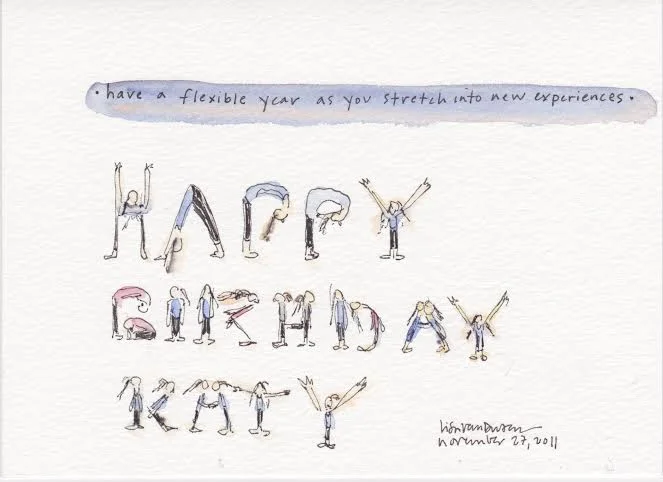 • have a flexible year as you stretch into new experiences •
HAPPY
BIRTHDAY
KATY
november 27, 2011